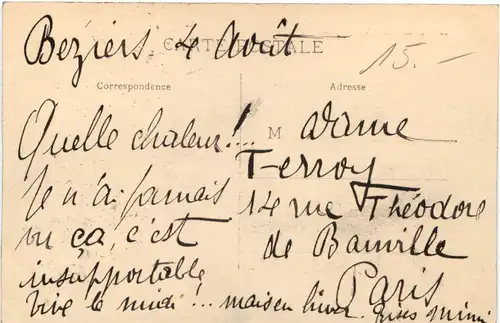 Beziers 4 Août
CARTE POSTALE
15.-
Correspondance
Adresse
Quelle chaleur !..
Je n'ai jamais
vu ça, c'est
insupportable
Vive le midi !.. mais en hiver.
Madame
Terroy
14 rue Théodore
de Banville
Paris